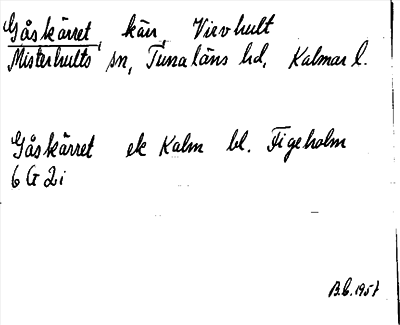 Gåskärret, kärr, Virvhult
Misterhults sn, Tunaläns hd, Kalmar l.
Gåskärret ek Kalm bl. Figeholm
6 G 2i
B.C. 1957